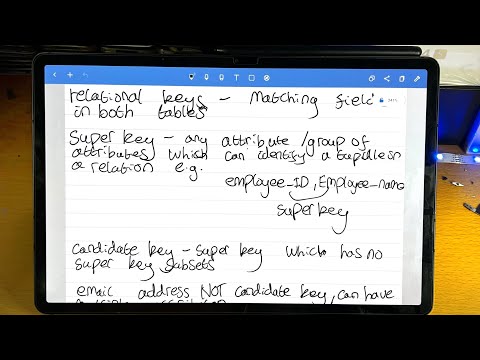 relational keys - Matching field
in both tables
Super key - any attribute/group of
attributes which can identify a tuple
a relation e.g.
employee_ID, Employee-name
superkey
Candidate key - super key which has no
super key subsets
email address NOT candidate key, can have